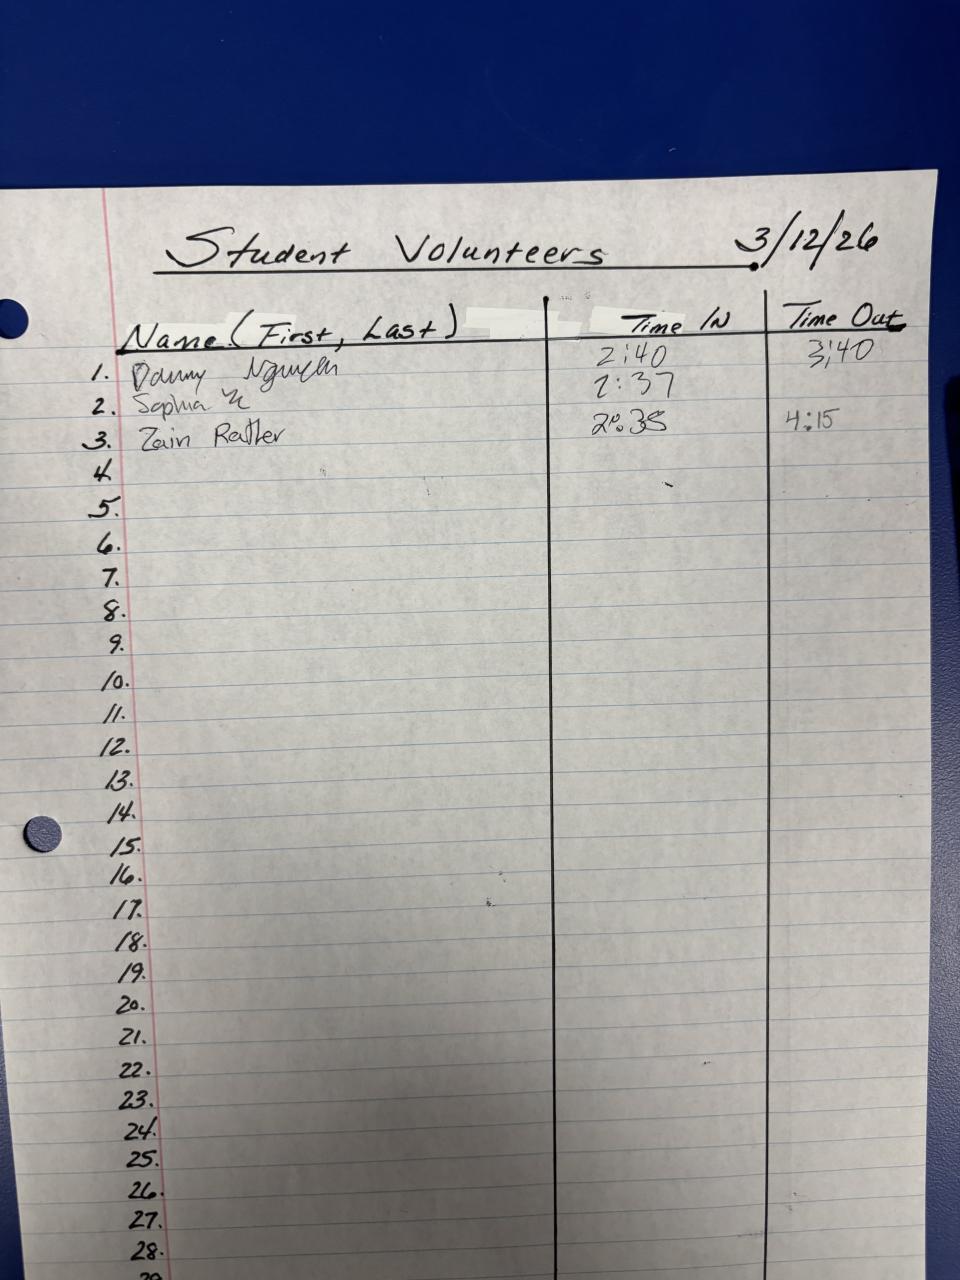 Student Volunteers 3/12/26
Name (First, Last) Time IN Time Out
1. Danny Nguyen 2:40 3:40
2. Sophia 2:37
3. Zain Rather 2:35 4:15
4
5.
6.
7.
8.
9.
10.
11.
12.
13.
14.
15.
16.
17.
18.
19.
20.
21.
22.
23.
24.
25.
26.
27.
28.
29